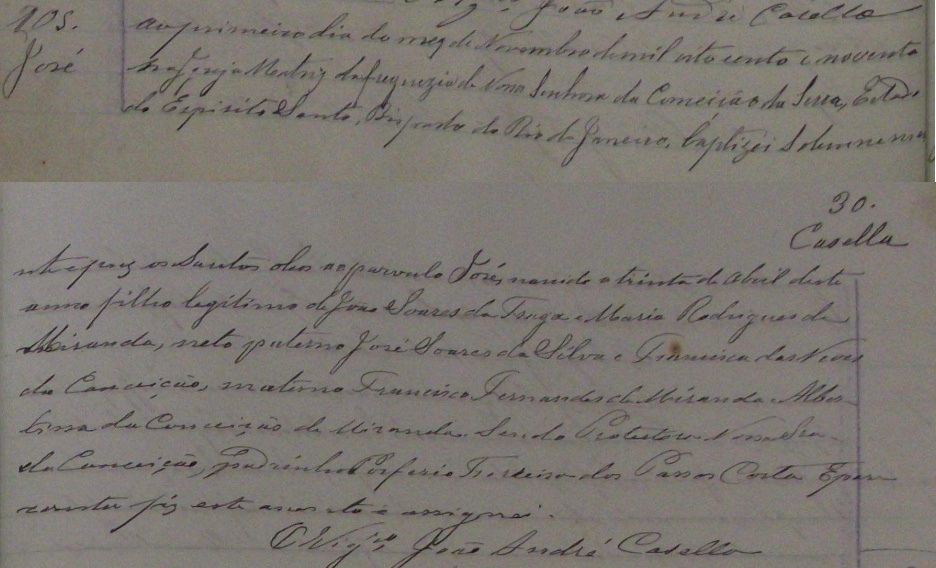 João André Casella
105.
José
ao primeiro dia do mez de Novembro de mil oito cento e noventa
na Igreja Matriz da freguezia de Nossa Senhora da Conceição da Serra, Estado
do Espirito Santo, Bispado do Rio de Janeiro, baptizei Solemneme
30.
Casella
nte e puz os Santos oleos ao parvulo José, nascido a trinta de Abril deste
anno filho legitimo de João Soares da Fraga e Maria Rodrigues de
Miranda, neto paterno José Soares da Silva e Francisca das Neves
da Conceição, materno Francisco Fernandes de Miranda e Alber
tina da Conceição de Miranda. Sendo Protectora Nossa Sra.
da Conceição, padrinho Porferio Ferreira dos Passos Costa E para
constar fiz este assento e assignei.
O Vigro. João André Casella